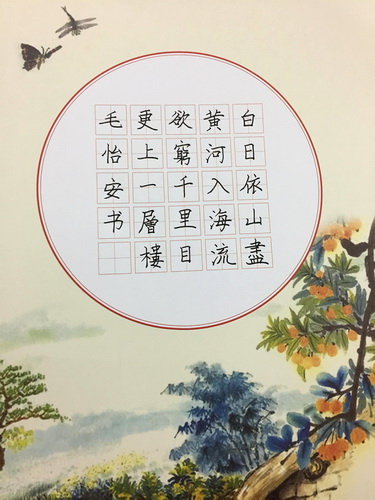 白日依山盡
黄河入海流
欲窮千里目
更上一層樓
毛怡安书